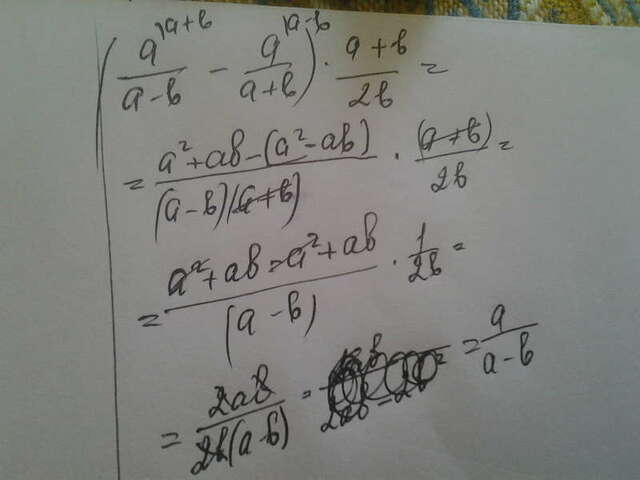 (a^{|a+b}/(a-b) - a^{|a-b}/(a+b)) · (a+b)/2b =
= (a²+ab-(a²-ab))/((a-b)(a+b)) · (a+b)/2b =
= (a²+ab-a²+ab)/(a-b) · 1/2b =
= 2ab/(2b(a-b)) = = a/(a-b)